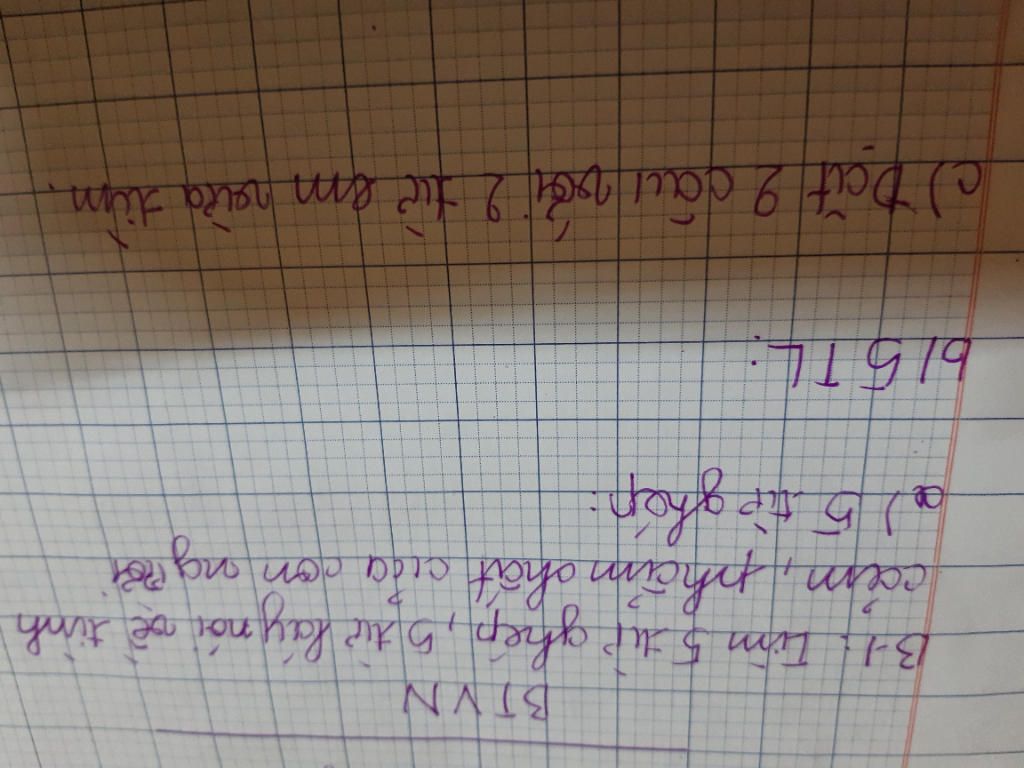 BTVN
B1: Tìm 5 từ ghép, 5 từ láy nói về tình
cảm, phẩm chất của con người
a) 5 từ ghép:
b) 5 TL:
c) Đặt 2 câu với 2 từ em vừa tìm.